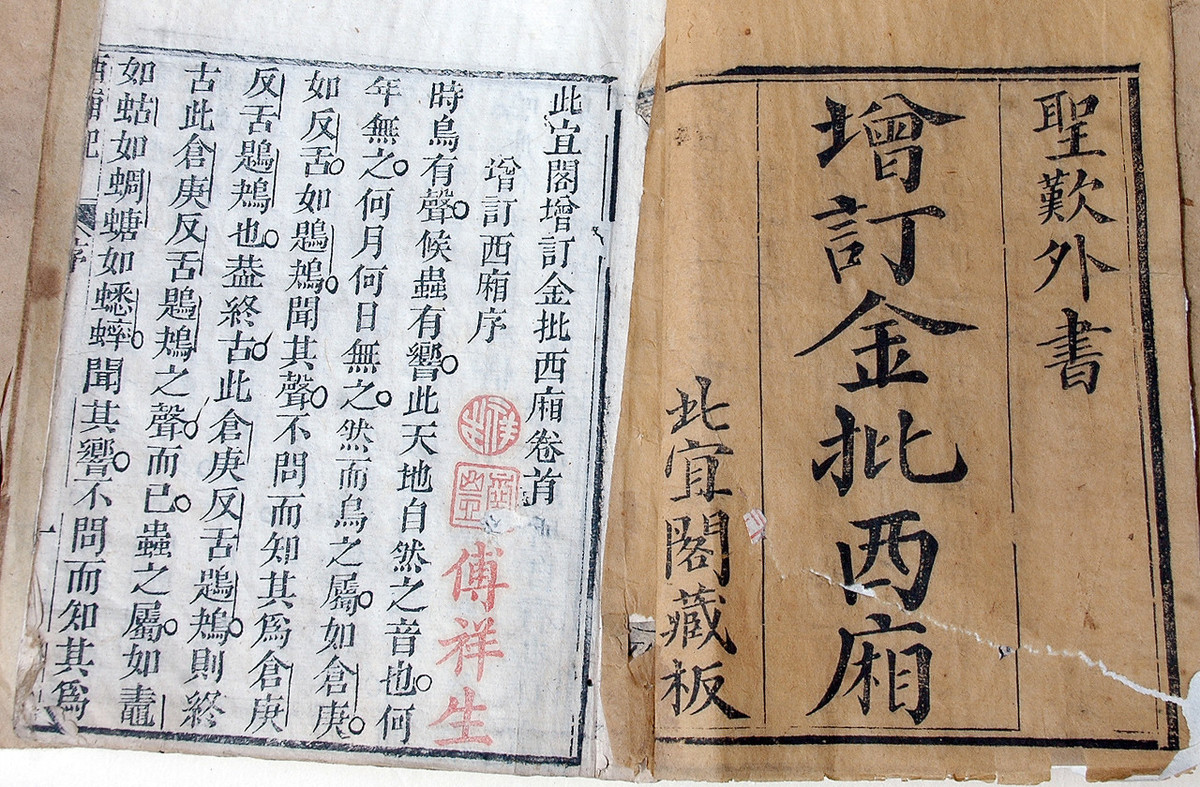 聖歎外書
增訂金批西廂
此宜閣藏板
此宜閣增訂金批西廂卷首
增訂西廂序
時鳥有聲候蟲有響此天地自然之音也何
年無之何月何日無之然而鳥之屬如倉庚
如反舌如鶗鴂聞其聲不問而知其爲倉庚
反舌鶗鴂也葢終古此倉庚反舌鶗鴂則終
古此倉庚反舌鶗鴂之聲而已蟲之屬如𪓰
如蛄如蜩螗如蟋蟀聞其響不問而知其爲
西廂記
序
一
傅祥生